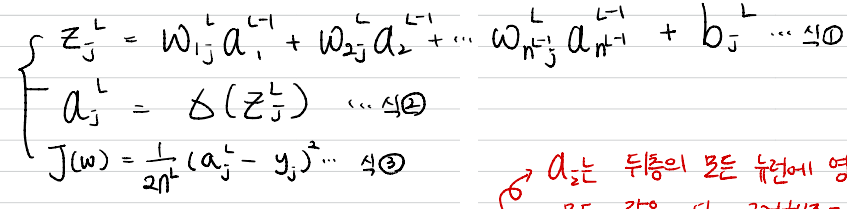 z_j^L = w_{1j}^L a_1^{L-1} + w_{2j}^L a_2^{L-1} + ... w_{n^{L-1}j}^L a_{n^{L-1}}^{L-1} + b_j^L ... 식①
a_j^L = σ(z_j^L) ... 식②
J(w) = 1/2n^L (a_j^L - y_j)^2 ... 식③
a_z^L는 뒤층의 모든 뉴런에 영